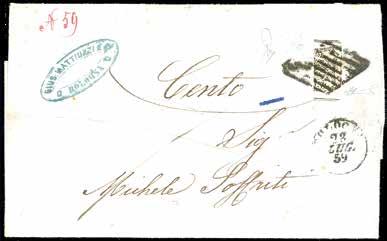 N 59
GIUS. MATTIUZZI E
BOLOGNA
Cento
Sig
Michele Soffriti
BOLOGNA
23
LUG.
59